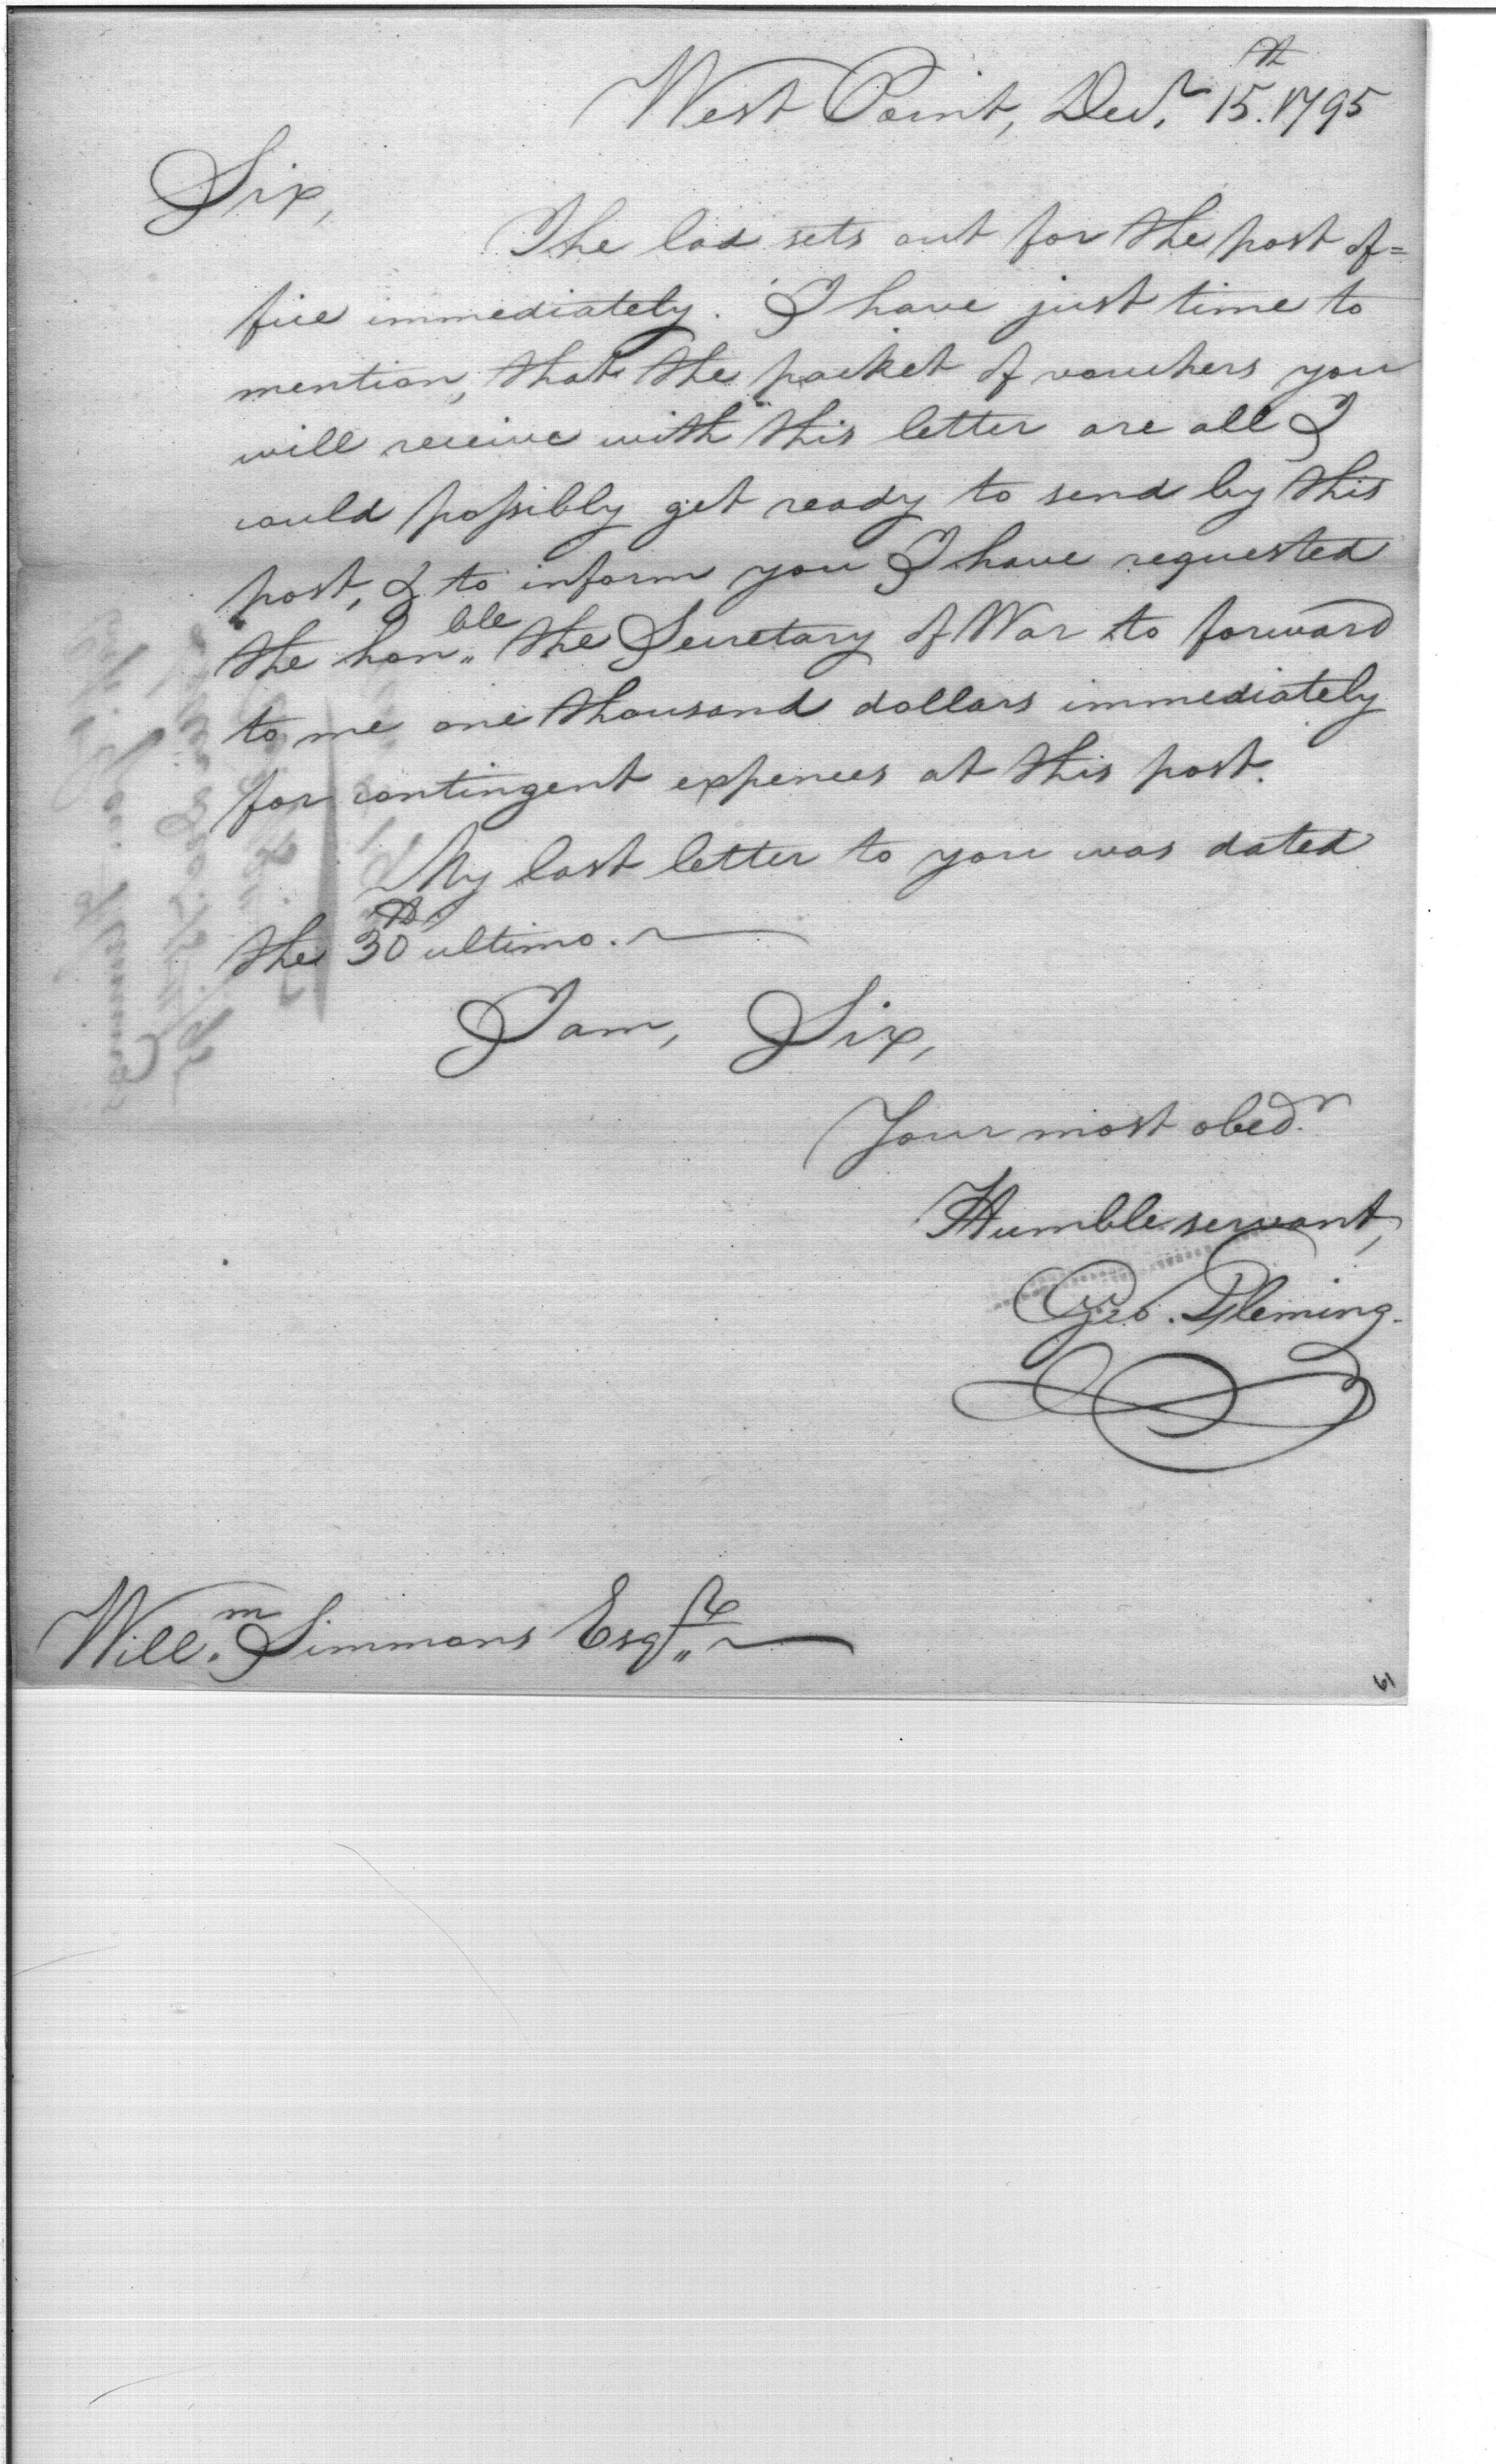 West Point, Decr. 15th. 1795
Sir,
The lad sets out for the post of=
fice immediately. I have just time to
mention, that the packet of vouchers you
will receive with this letter are all I
could possibly get ready to send by this
post, & to inform you I have requested
the honble the Secretary of War to forward
to me one thousand dollars immediately
for contingent expences at this post.
My last letter to you was dated
the 30th ultimo.
I am, Sir,
Your most obedr.
Humble servant,
Geo. Fleming.
Willm. Simmons Esqr.